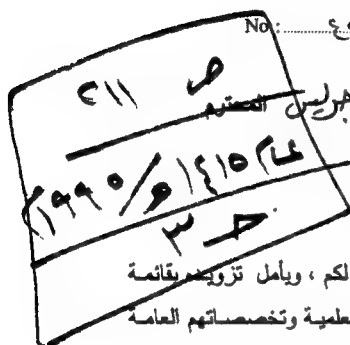 No :
ص ٢١١
المحترم
عام ١٤١٥هـ/١٩٩٥م
حـ ٣
لكم ، ويأمل تزويده بقائمة
علمية وتخصصاتهم العامة